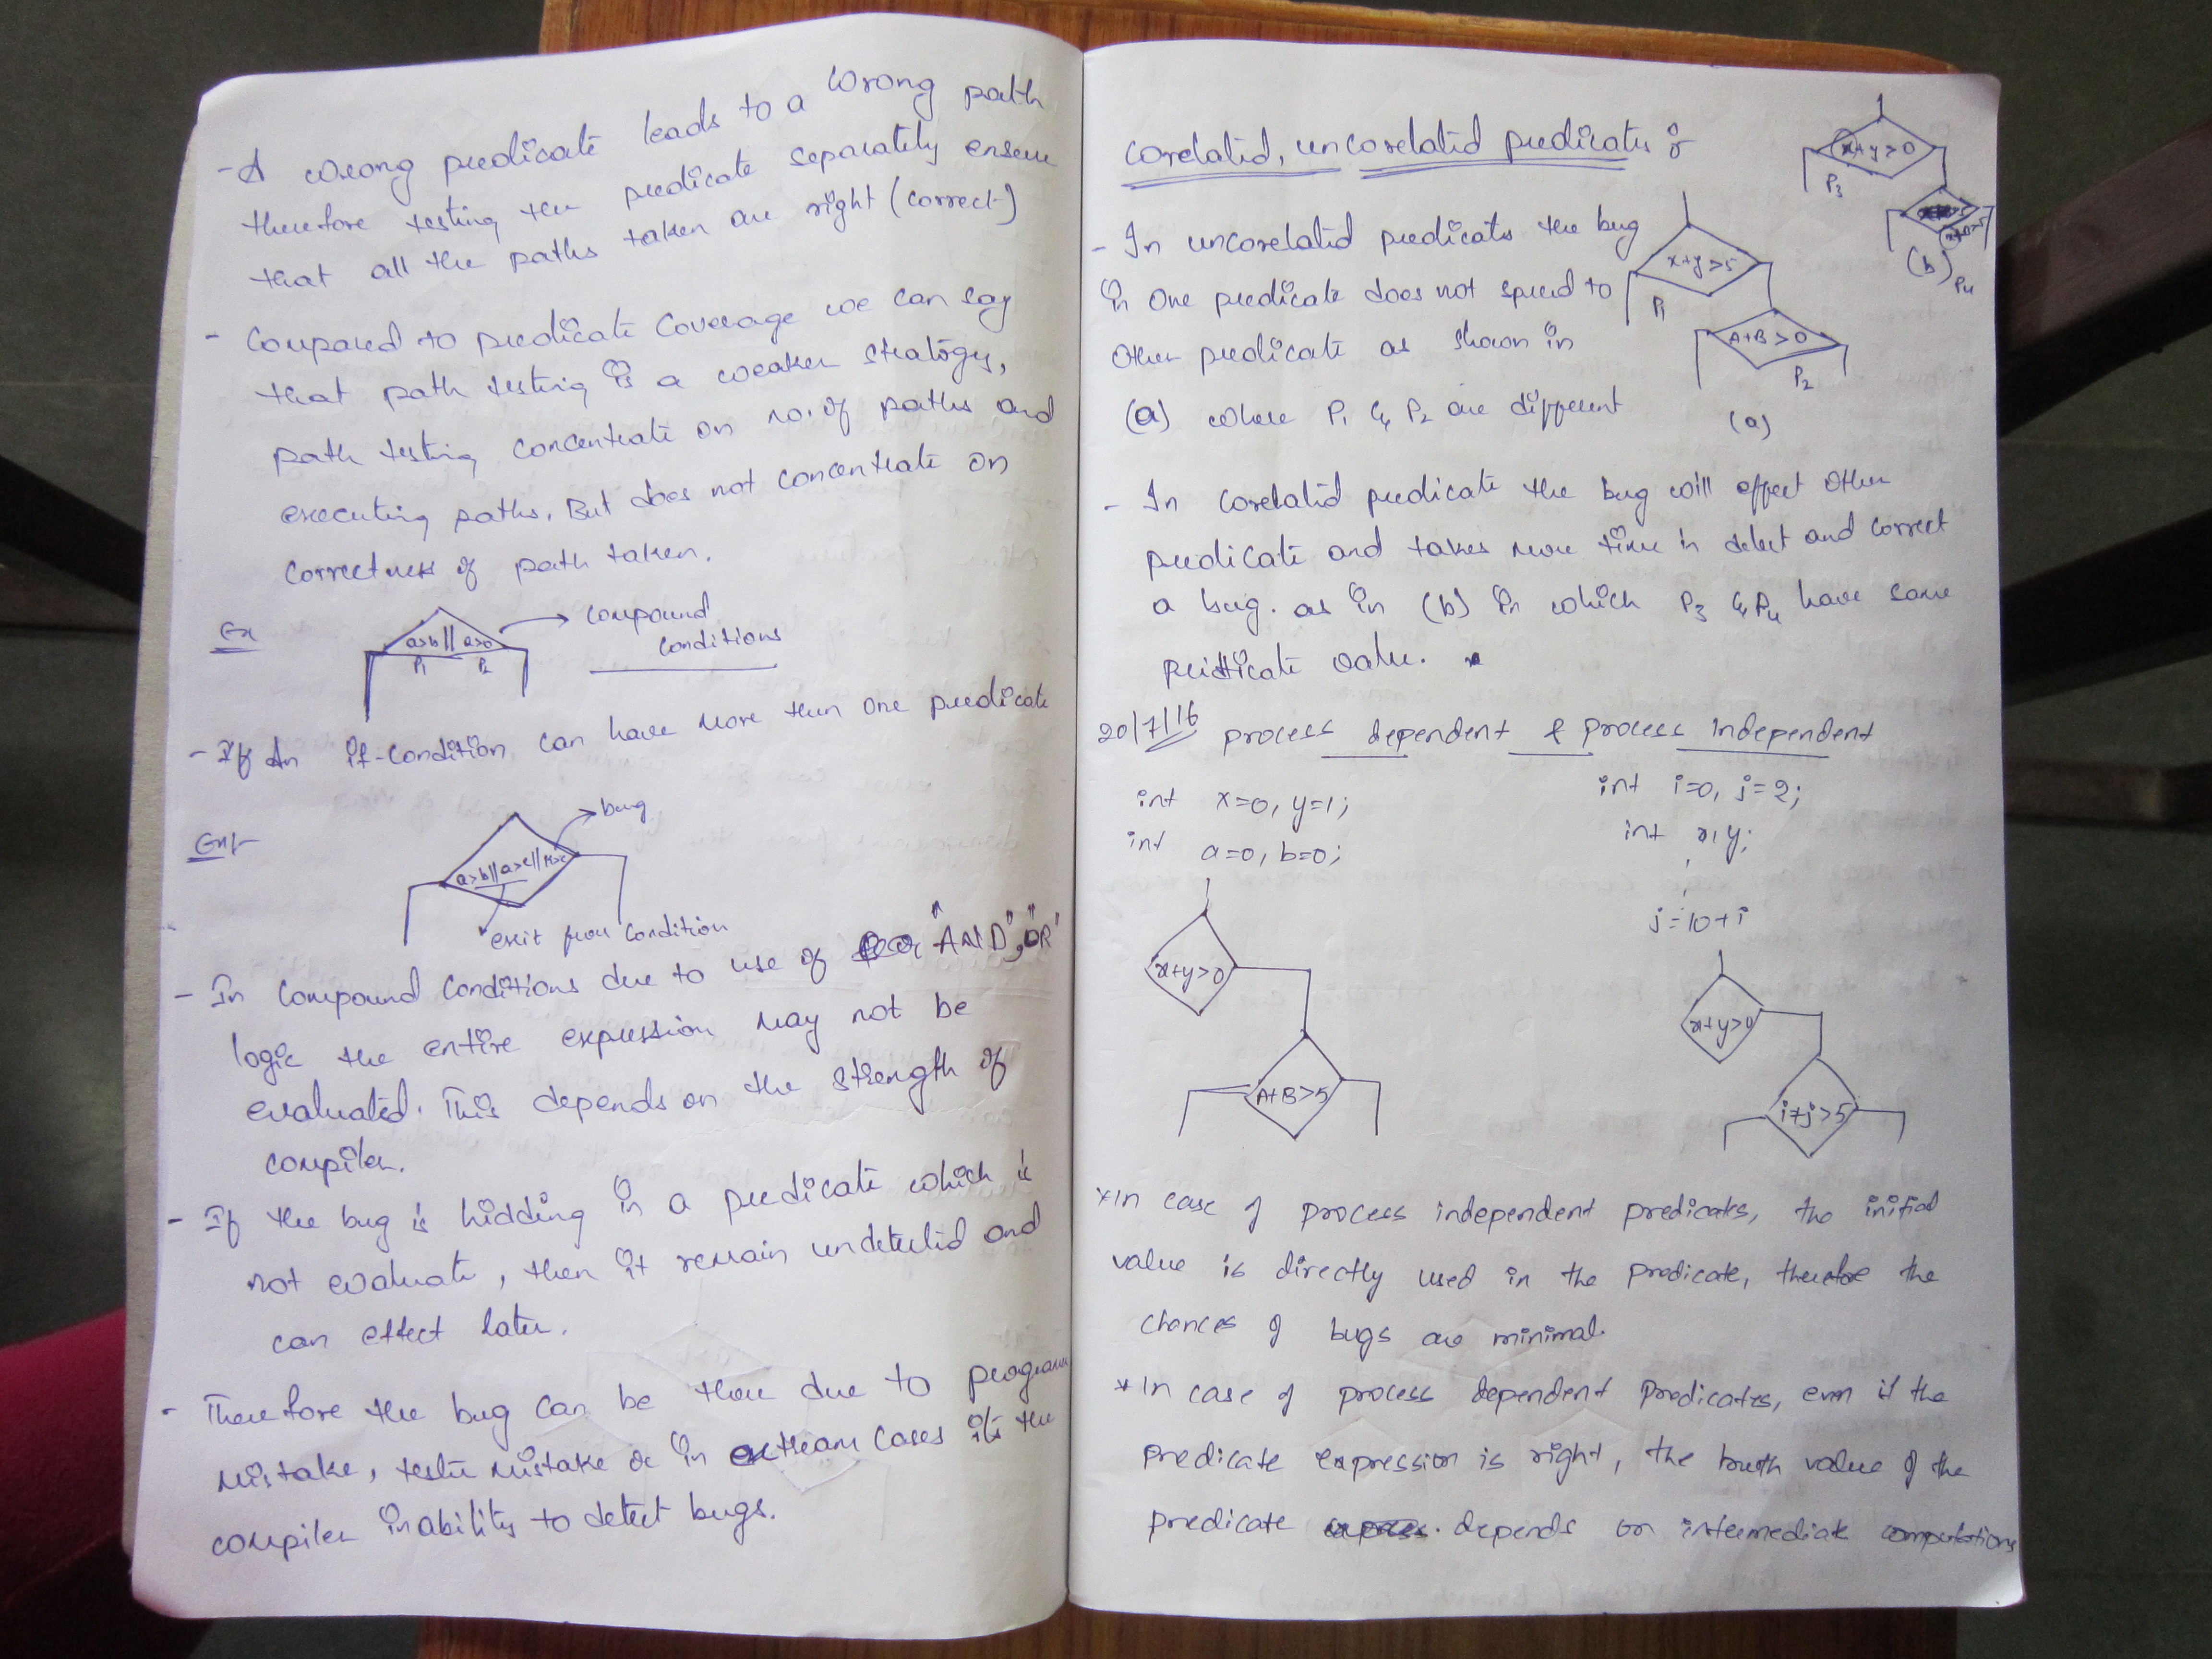 - A wrong predicate leads to a wrong path
therefore testing the predicate separately ensure
that all the paths taken are right (correct)
- Compared to predicate coverage we can say
that path testing is a weaker strategy,
path testing concentrate on no. of paths and
executing paths. But does not concentrate on
correctness of path taken.
Ex
a>b || a>0
P1 P2
compound
conditions
- If An if-condition can have more then one predicate
Ex:-
a>b||a>c||
bug
exit from condition
- In compound conditions due to use of "AND", "OR"
logic the entire expression may not be
evaluated. This depends on the strength of
compiler.
- If the bug is hidding in a predicate which is
not evaluate, then it remain undetected and
can effect later.
- Therefore the bug can be there due to program
mistake, tester mistake or in extream cases its the
compiler inability to detect bugs.
Correlated, uncorrelated predicates
- In uncorrelated predicates the bug
in one predicate does not spread to
other predicate as shown in
(a) where P1 & P2 are different
x+y>5
P1
A+B>0
P2
(a)
x+y>0
P3
P4
(b)
- In correlated predicate the bug will effect other
predicate and takes more time in detect and correct
a bug. as in (b) in which P3 & P4 have same
predicate value.
20/7/16 process dependent & process independent
int x=0, y=1;
int a=0, b=0;
x+y>0
A+B>5
int i=0, j=2;
int x,y;
j=10+i
x+y>0
i+j>5
*In case of process independent predicates, the initial
value is directly used in the predicate, therefore the
chances of bugs are minimal.
*In case of process dependent predicates, even if the
predicate expression is right, the truth value of the
predicate depends on intermediate computations